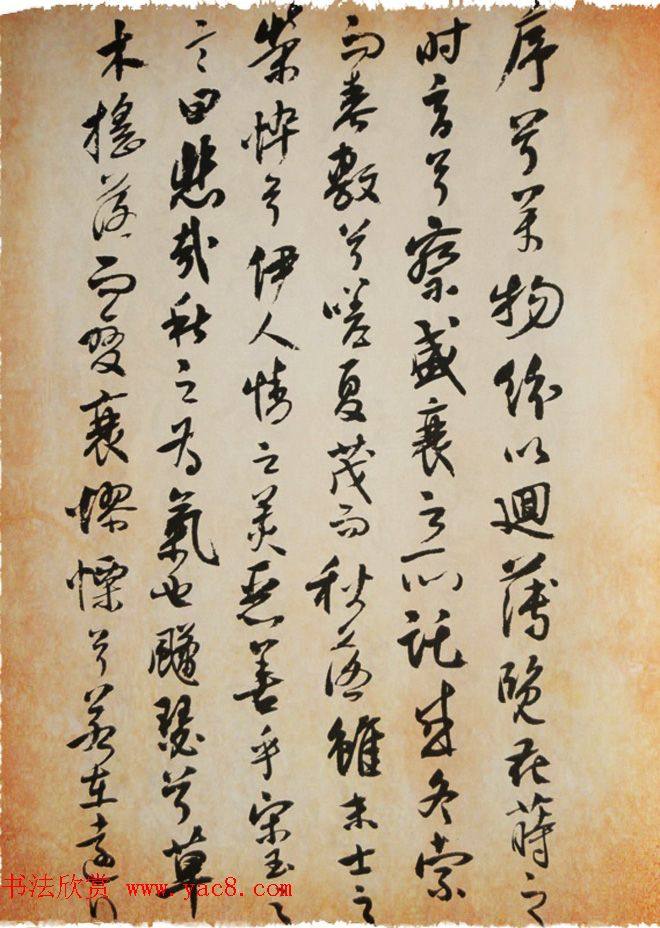 序兮万物紛以迴薄覽花蒔之
時育兮察盛衰之所託感冬索
而春敷兮嗟夏茂而秋落雖末士之
榮悴兮伊人情之美惡善乎宋玉之
言曰悲哉秋之為氣也瑟兮草
木搖落而變衰憀慄兮若在遠行
书法欣赏 www.yac8.com